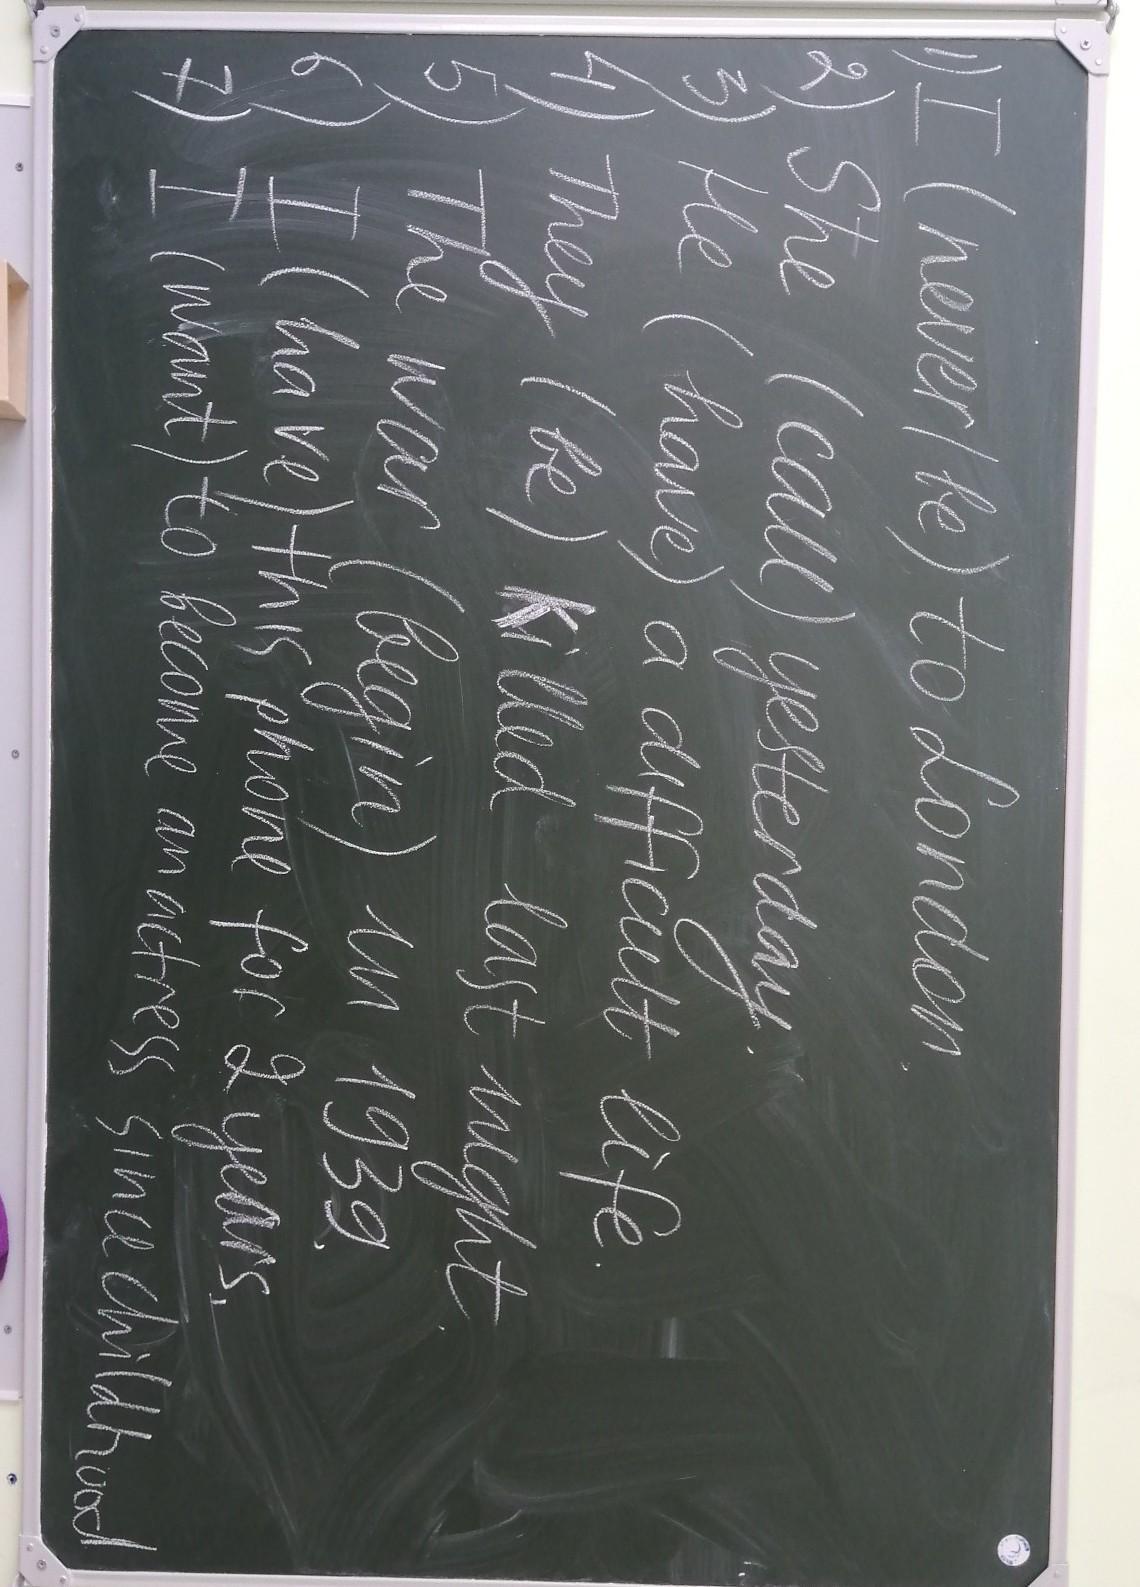 1) I (never/be) to London.
2) She (call) yesterday.
3) He (have) a difficult life.
4) They (be) killed last night.
5) The war (begin) in 1939.
6) I (have) this phone for 2 years.
7) I (want) to become an actress since childhood